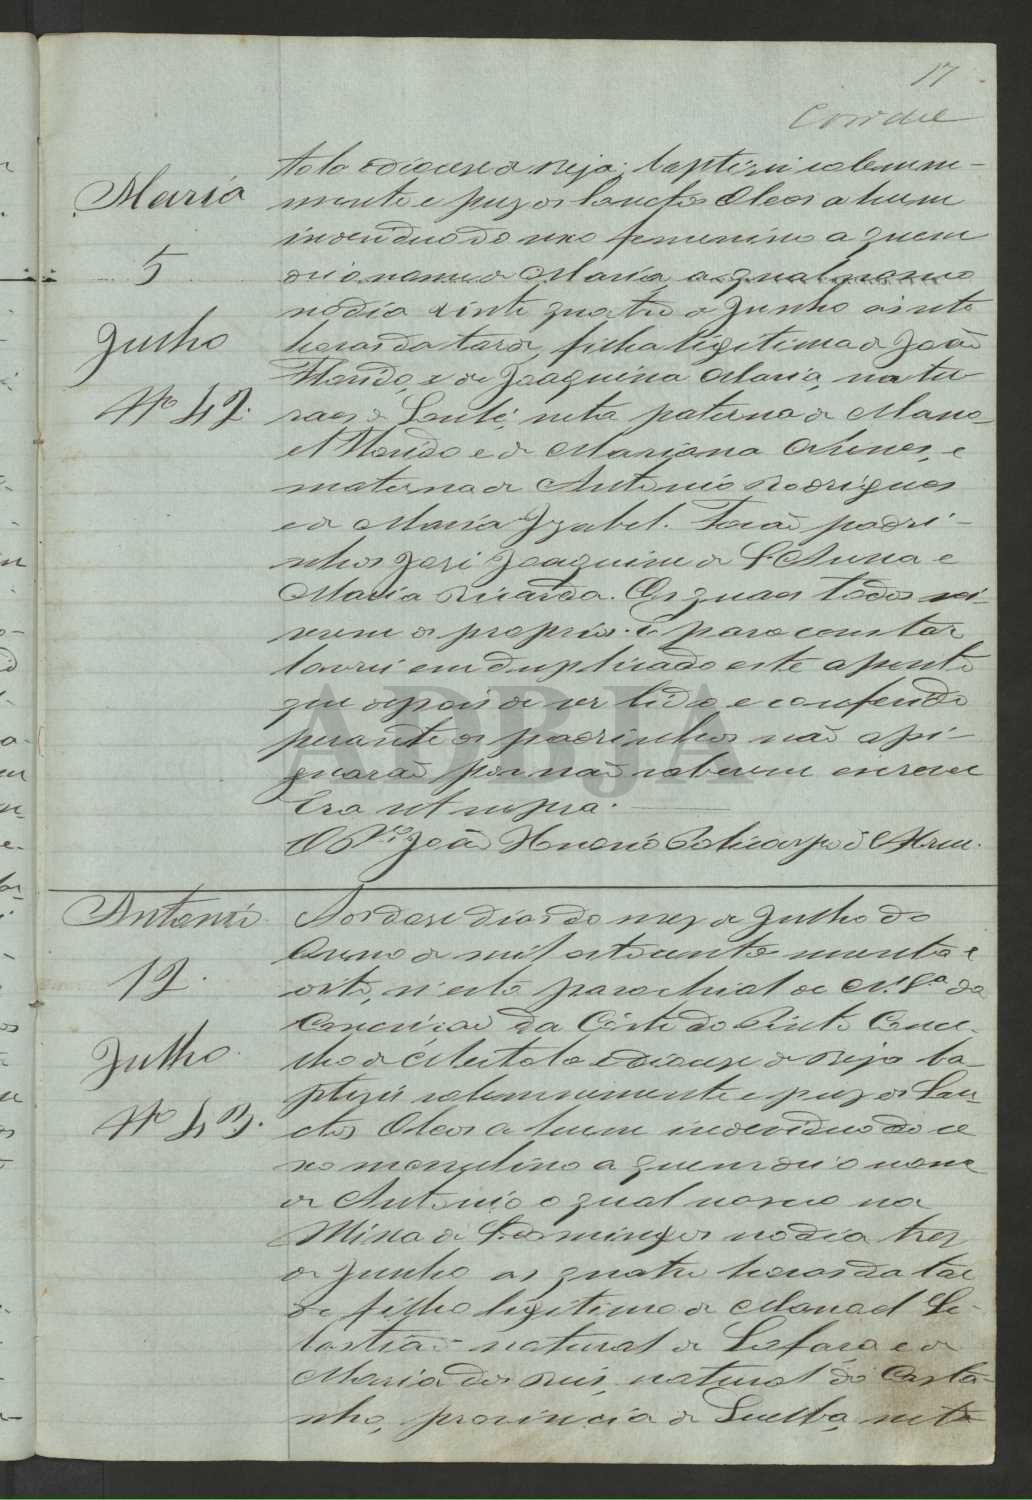 17
Maria
5
Julho
Nº 42.
tola Diocese de Beja; baptizei solemne-
mente e puz os Sanctos Oleos a hum
individuo do sexo femenino a quem
dei o nome de Maria a qual nasceo
no dia vinte quatro de Junho as sete
horas da tarde, filha legitima de João
Florido, e de Joaquina Maria, natu-
raes de Loulé, neta paterna de Mano-
el Florido e de Mariana Nunes, e
materna de Antonio Rodrigues
e de Maria Izabel. Forão padri-
nhos José Joaquim de S. Anna e
Maria Ricarda. Os quaes todos sei
serem os proprios. E para constar
lavrei em duplicado este assento
que depois de ser lido e conferido
perante os padrinhos não assi-
gnarão por não saberem escrever
Era ut supra.
O P.or João Honorio Policarpo
Antonio
12.
Julho
Nº 43.
Aos doze dias do mez de Julho do
Anno de mil oitocentos secenta e
oito, n'esta parochial de N. S.ª da
Conceição da Côrte do Pinto Conce-
lho de Mertola Diocese de Beja ba-
ptizei solemnemente e puz os San-
ctos Oleos a hum individuo do se
xo masculino a quem dei o nome
de Antonio o qual nasceo na
Mina de S. Domingos no dia tres
de Junho as quatro horas da tar
de filho legitimo de Manoel Se-
bastião natural de e de
Maria dos Reis, natural do Casta-
nho, provincia de Huelba, neto